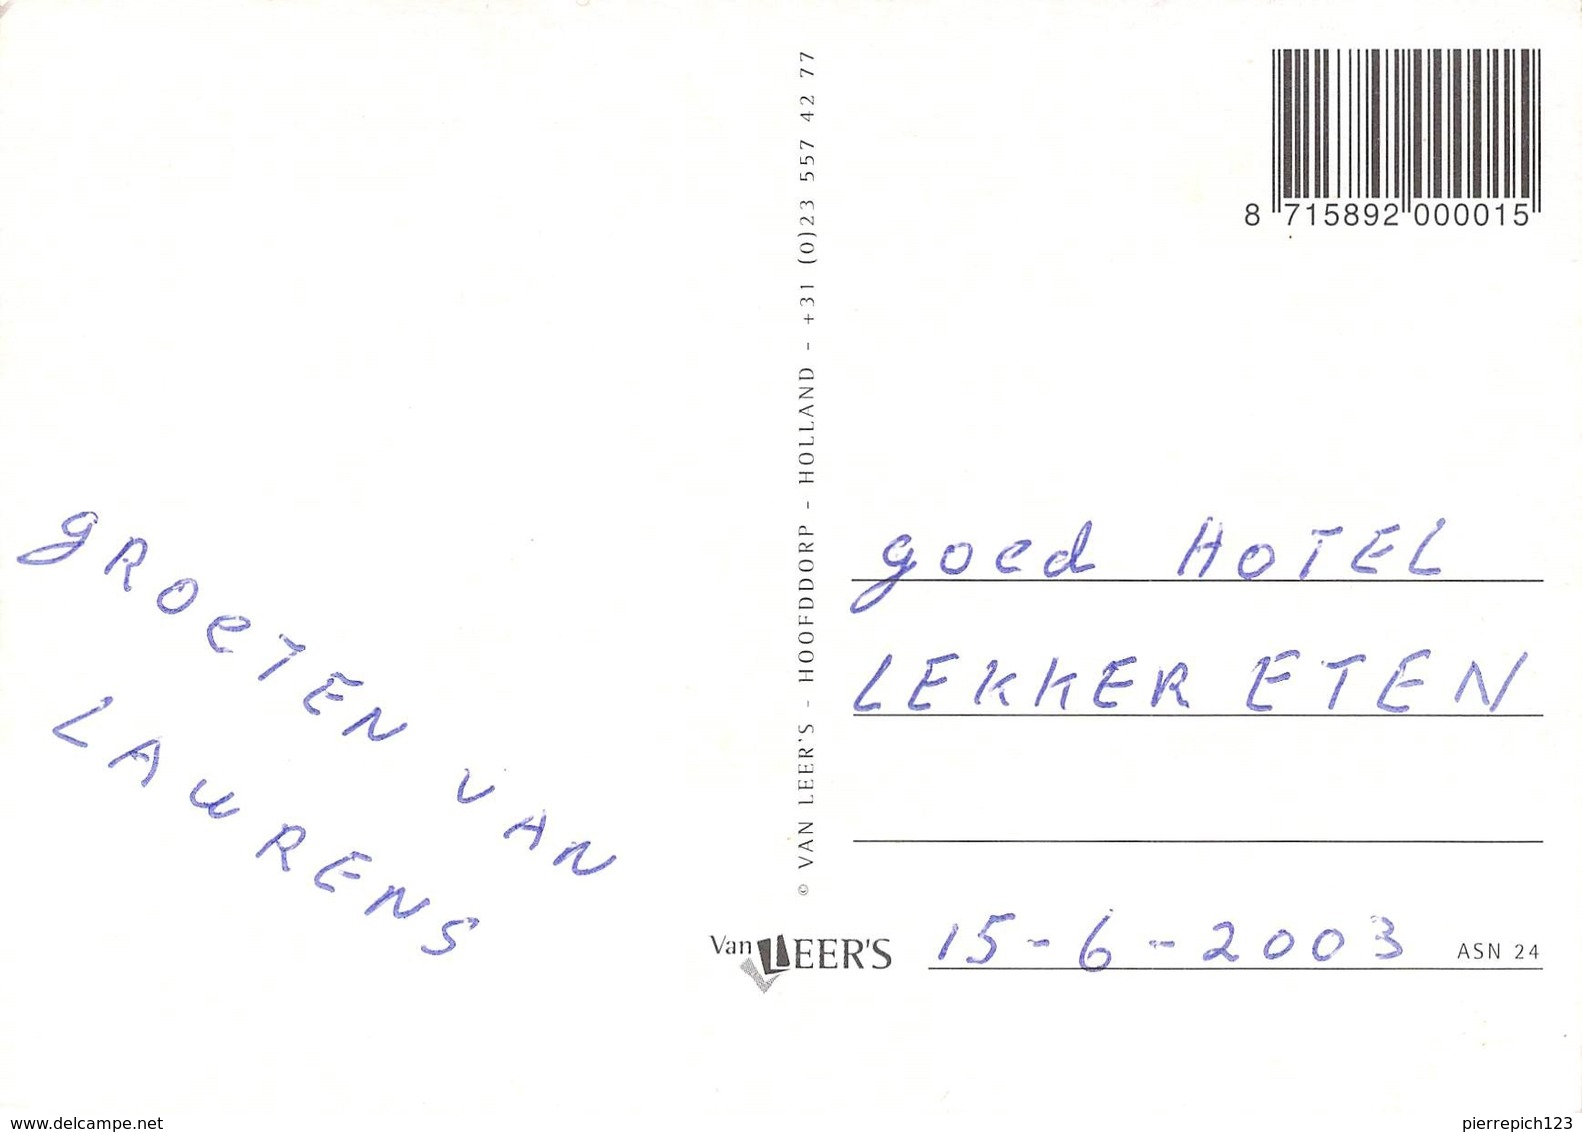 8 715892 000015
© VAN LEER'S - HOOFDDORP - HOLLAND - +31 (0)23 557 42 77
GROETEN VAN
LAWRENS
goed HOTEL
LEKKER ETEN
15-6-2003
Van LEER'S
ASN 24
www.delcampe.net
pierrepich123